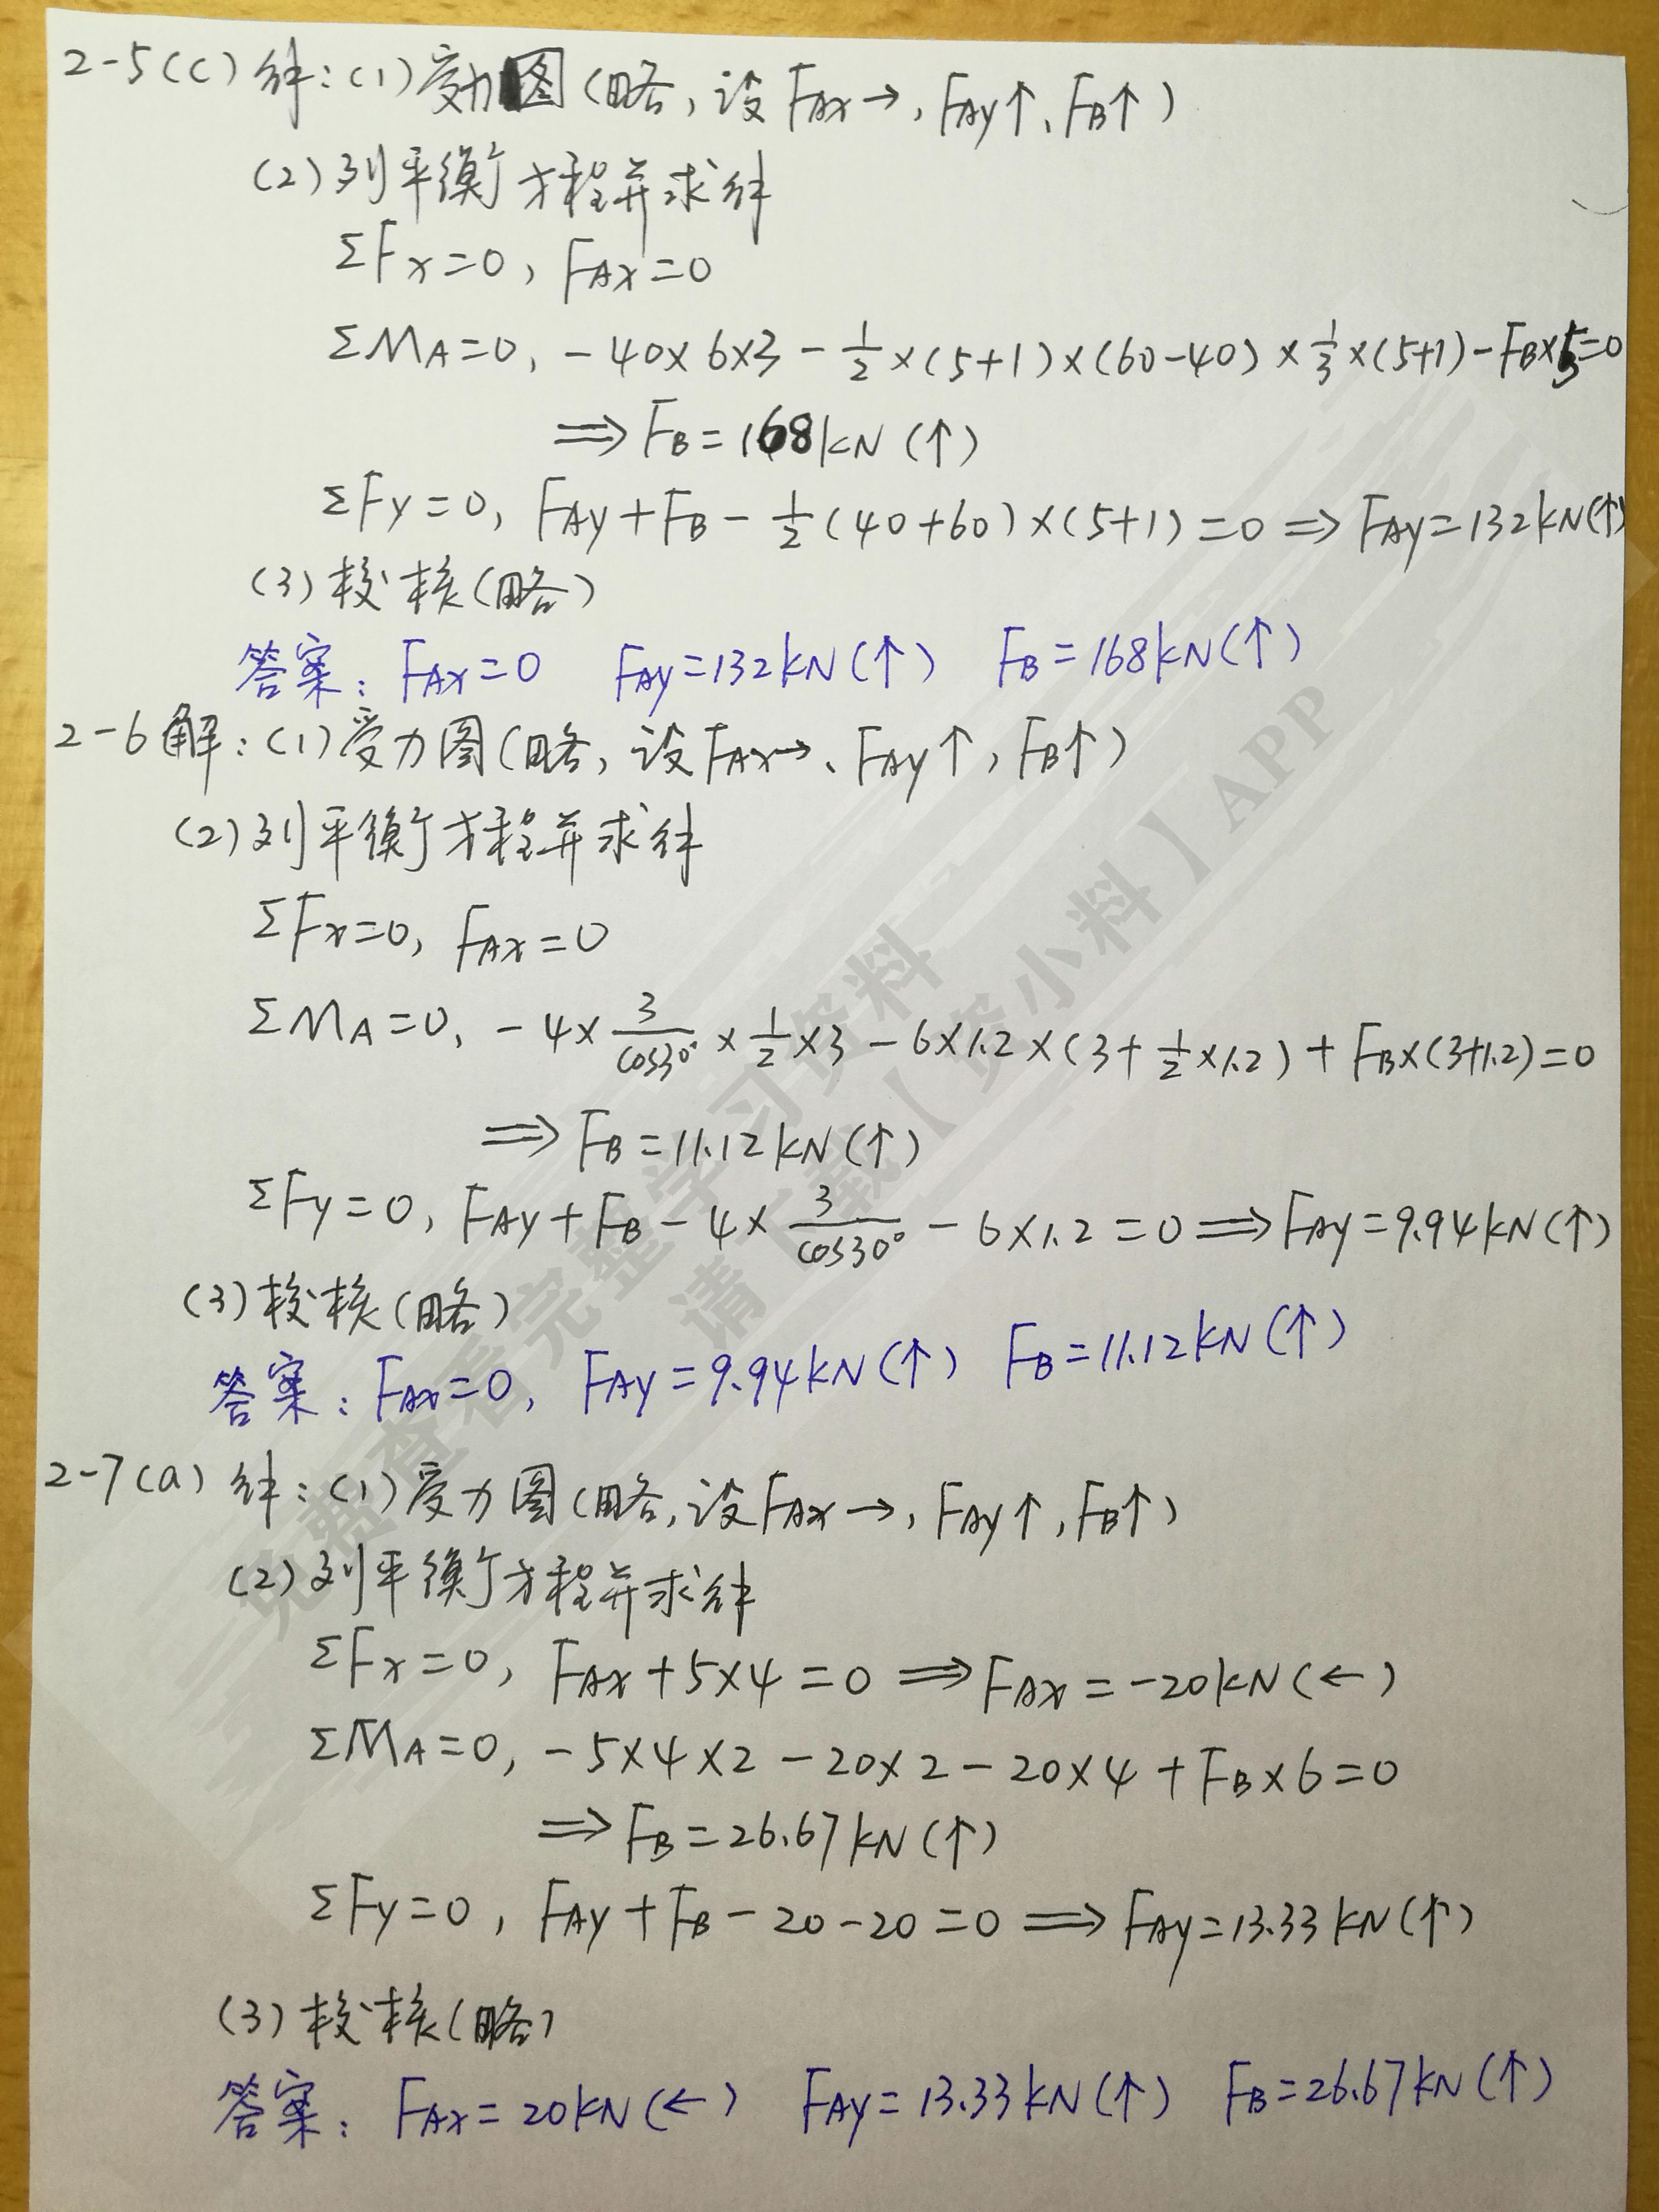 2-5(c) 解：(1)受力图(略,设FAx→,FAy↑、FB↑)
(2)列平衡方程并求解
ΣFx=0, FAx=0
ΣMA=0, -40×6×3-1/2×(5+1)×(60-40)×1/3×(5+1)-FB×5=0
⇒FB=168kN(↑)
ΣFy=0, FAy+FB-1/2(40+60)×(5+1)=0⇒FAy=132kN(↑)
(3)校核(略)
答案：FAx=0 FAy=132kN(↑) FB=168kN(↑)
2-6解：(1)受力图(略,设FAx→、FAy↑,FB↑)
(2)列平衡方程并求解
ΣFx=0, FAx=0
ΣMA=0, -4×3/cos30°×1/2×3-6×1.2×(3+1/2×1.2)+FB×(3+1.2)=0
⇒FB=11.12kN(↑)
ΣFy=0, FAy+FB-4×3/cos30°-6×1.2=0⇒FAy=9.94kN(↑)
(3)校核(略)
答案：FAx=0, FAy=9.94kN(↑) FB=11.12kN(↑)
2-7(a) 解：(1)受力图(略,设FAx→,FAy↑,FB↑)
(2)列平衡方程并求解
ΣFx=0, FAx+5×4=0⇒FAx=-20kN(←)
ΣMA=0, -5×4×2-20×2-20×4+FB×6=0
⇒FB=26.67kN(↑)
ΣFy=0, FAy+FB-20-20=0⇒FAy=13.33kN(↑)
(3)校核(略)
答案：FAx=20kN(←) FAy=13.33kN(↑) FB=26.67kN(↑)
免费查看完整学习资料
请下载【资小料】APP